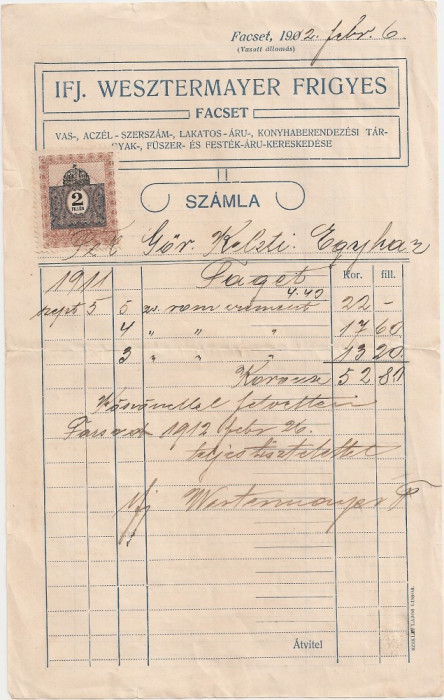 Facset, 1912. febr. 6
(Vasuti állomás)
IFJ. WESZTERMAYER FRIGYES
FACSET
VAS-, ACZÉL-SZERSZÁM-, LAKATOS-ÁRU-, KONYHABERENDEZÉSI TÁR-
GYAK-, FÜSZER- ÉS FESTÉK-ÁRU-KERESKEDÉSE
2
FILLÉR
SZÁMLA
Gör. Keleti Egyház
Kor. fill.
1911 Faget
4.40
szept 5 5 zs. rom cement 22 -
4 " " " 17 60
3 " " " 13 20
Korona 52 80
Köszönettel felvettem
Facsad 1912 febr 26.
teljes tisztelettel
ifj Westermayer F
Átvitel